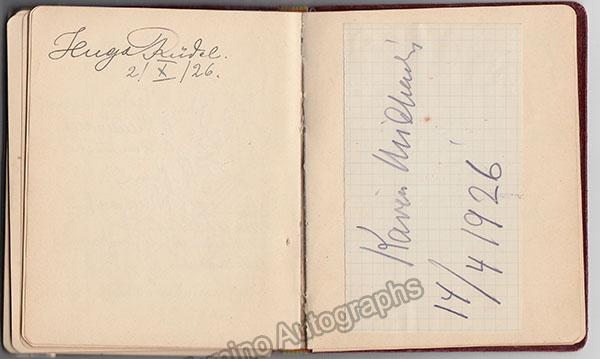 Hugo Rüdel.
2/X/26.
Karin Michaelis
14/4 1926
Tamino Autographs